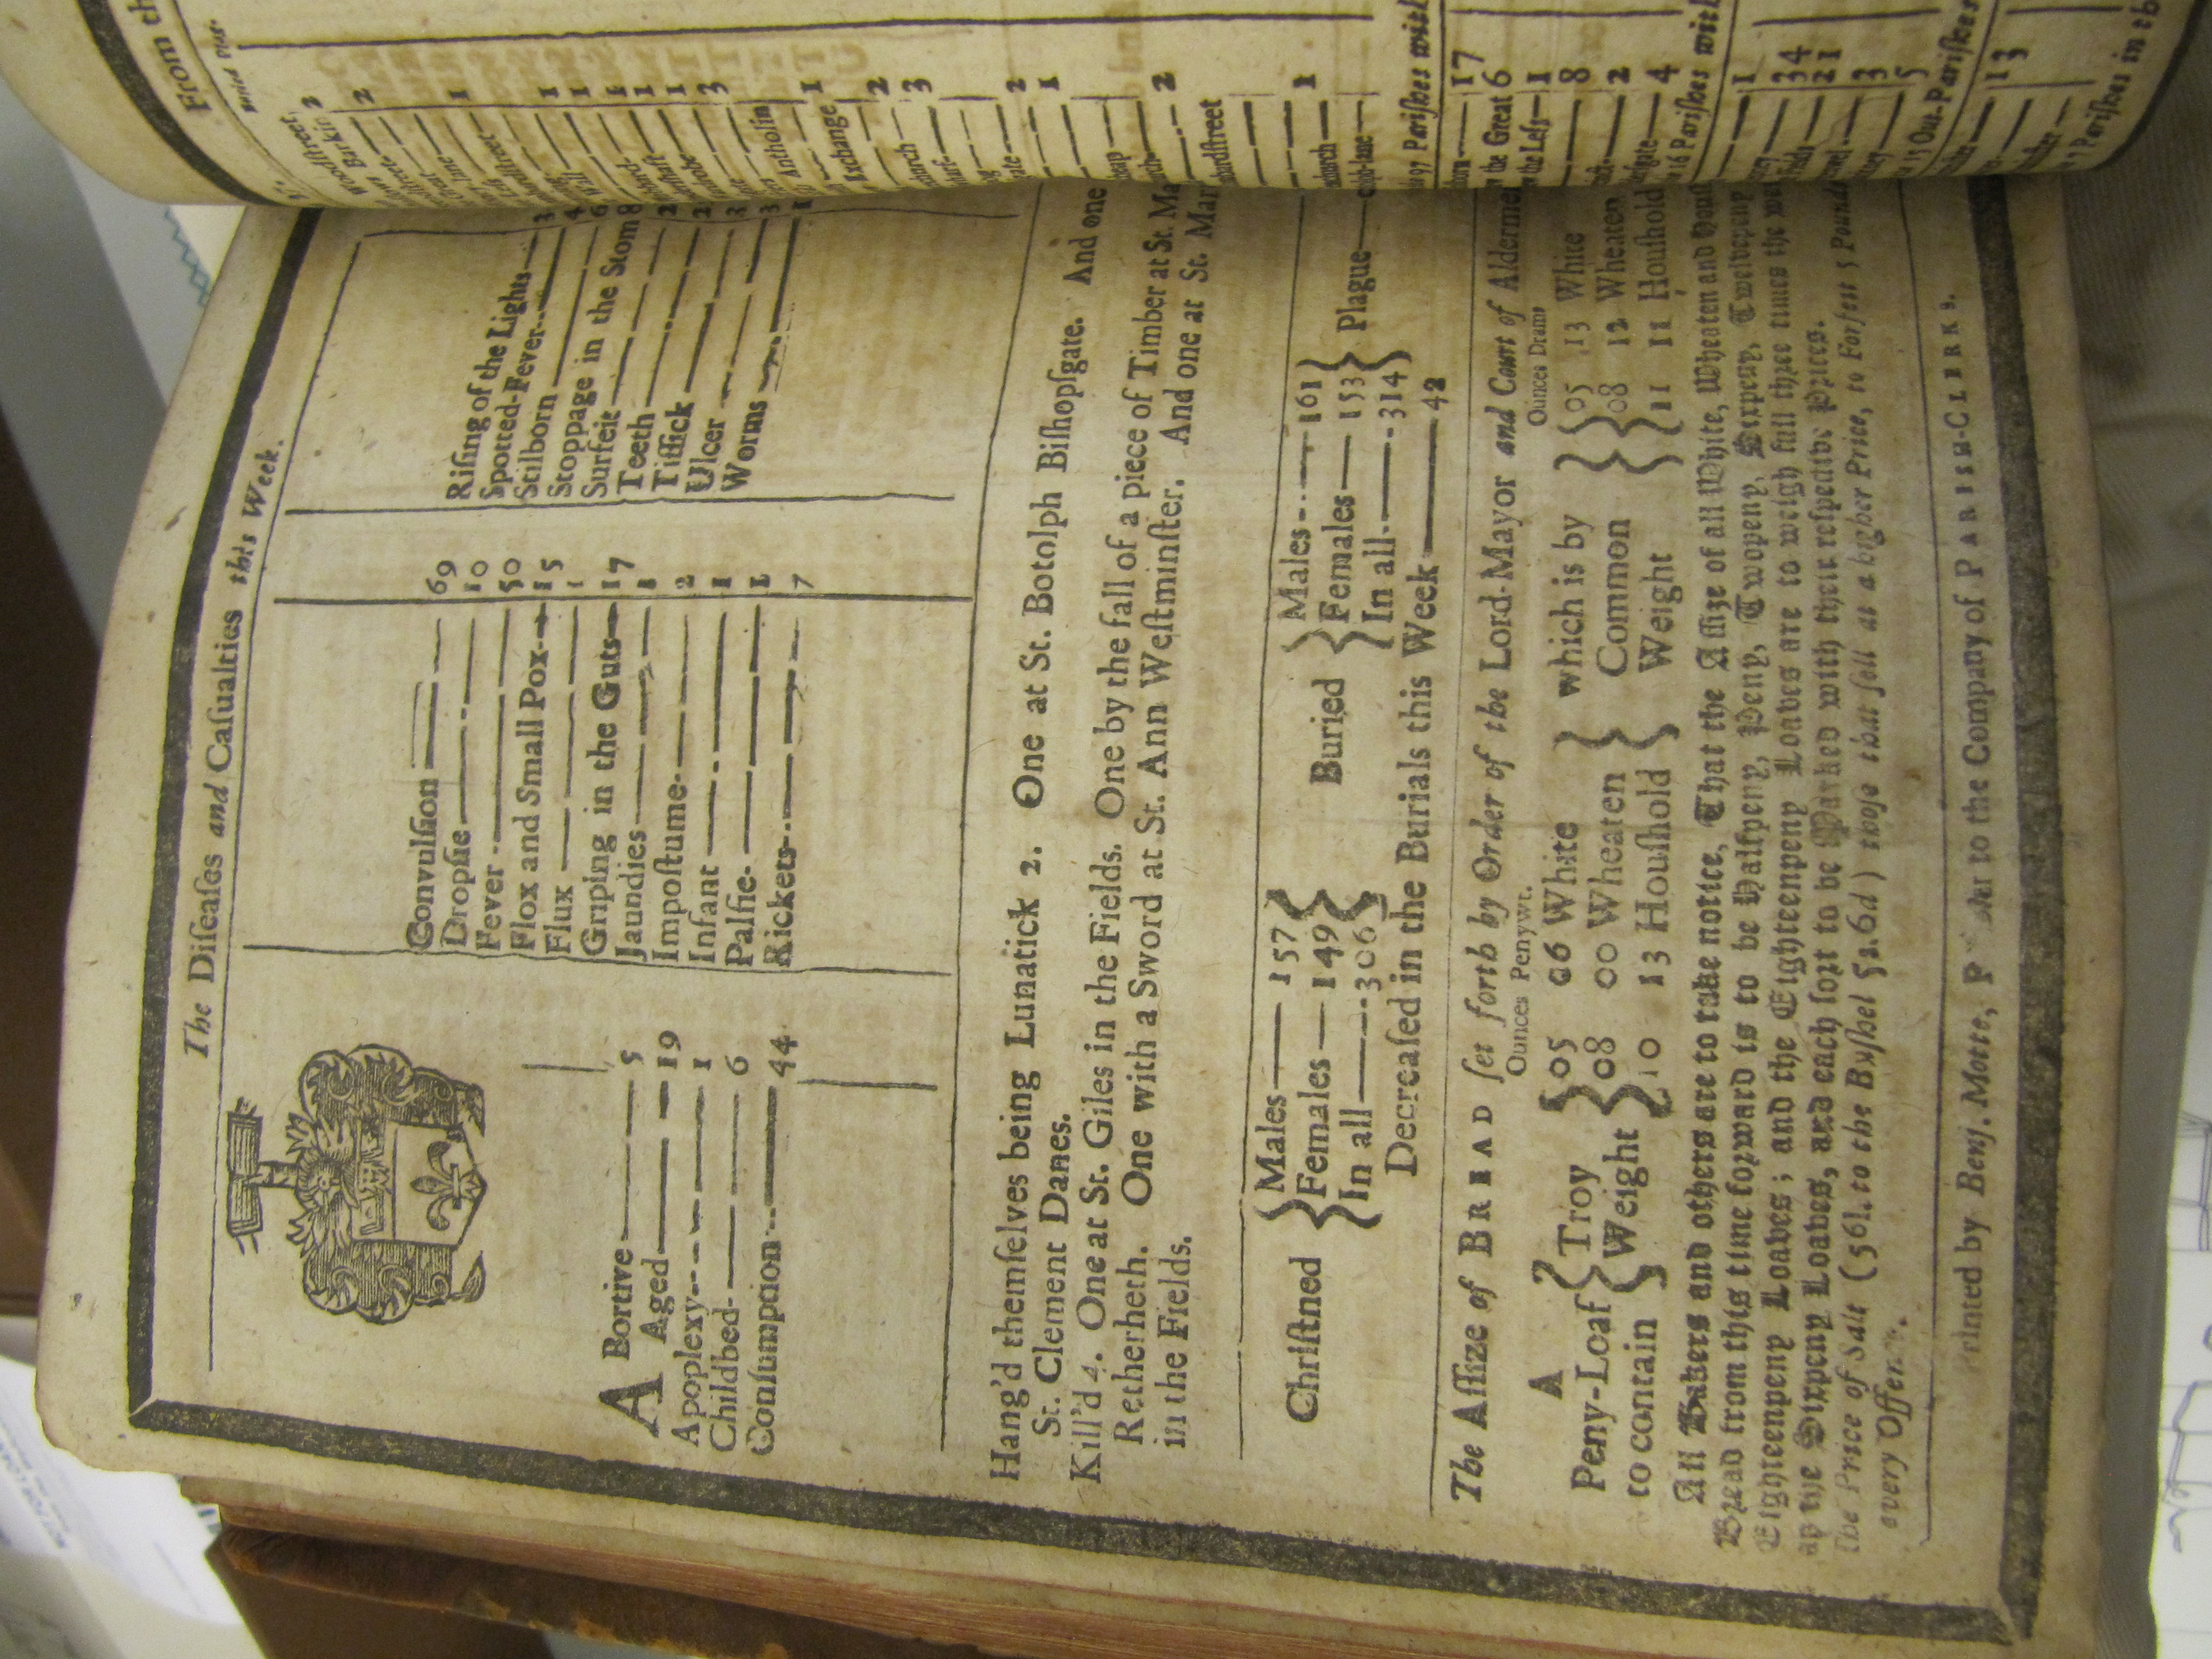 The Diſeaſes and Caſualties this Week.
A Bortive 5
Aged 19
Apoplexy 1
Childbed 6
Conſumption 44
Convulſion 69
Dropſie 10
Fever 50
Flox and Small Pox 15
Flux 1
Griping in the Guts 17
Jaundies 1
Impoſtume 2
Infant 1
Palſie 1
Rickets 7
Riſing of the Lights 3
Spotted-Fever 4
Stilborn 6
Stoppage in the Stom 8
Surfeit 2
Teeth
Tiſſick
Ulcer
Worms
Hang'd themſelves being Lunatick 2. One at St. Botolph Biſhopſgate. And one
St. Clement Danes.
Kill'd 4. One at St. Giles in the Fields. One by the fall of a piece of Timber at St. Ma
Retherheth. One with a Sword at St. Ann Weſtminſter. And one at St. Mar
in the Fields.
Chriſtned { Males — 157 } Buried { Males — 161 } Plague
Females — 149 Females — 153
In all — 306 In all — 314
Decreaſed in the Burials this Week — 42
The Aſſize of BREAD ſet forth by Order of the Lord-Mayor and Court of Aldermen
Ounces Penywt. Ounces Drams
A Peny-Loaf to contain } Troy Weight { 05 06 White } which is by Common Weight { 05 13 White
08 00 Wheaten 08 12 Wheaten
10 13 Houſhold 11 11 Houſhold
All Bakers and others are to take notice, That the Aſſize of all White, Wheaten and Houſ
Bread from this time forward is to be Halfpeny, Peny, Twopeny, Sixpeny, Twelvepeny
Eighteenpeny Loaves; and the Eighteenpeny Loaves are to weigh full three times the we
as the Sixpeny Loaves, and each ſort to be Marked with their reſpective Prices.
The Price of Salt (56l. to the Buſhel 5s. 6d) thoſe that ſell at a higher Price, to Forfeit 5 Pounds
every Offence.
Printed by Benj. Motte, P to the Company of PARISH-CLERKS.
From th
Buried Plag.
Woodſtreet 2
Barkin 2
Antholin
Exchange
97 Pariſhes with
17
the Great 6
the Leſs 1
8
2
4
16 Pariſhes with
1
34
21
3
5
15 Out-Pariſhes
13
3
Pariſhes in th